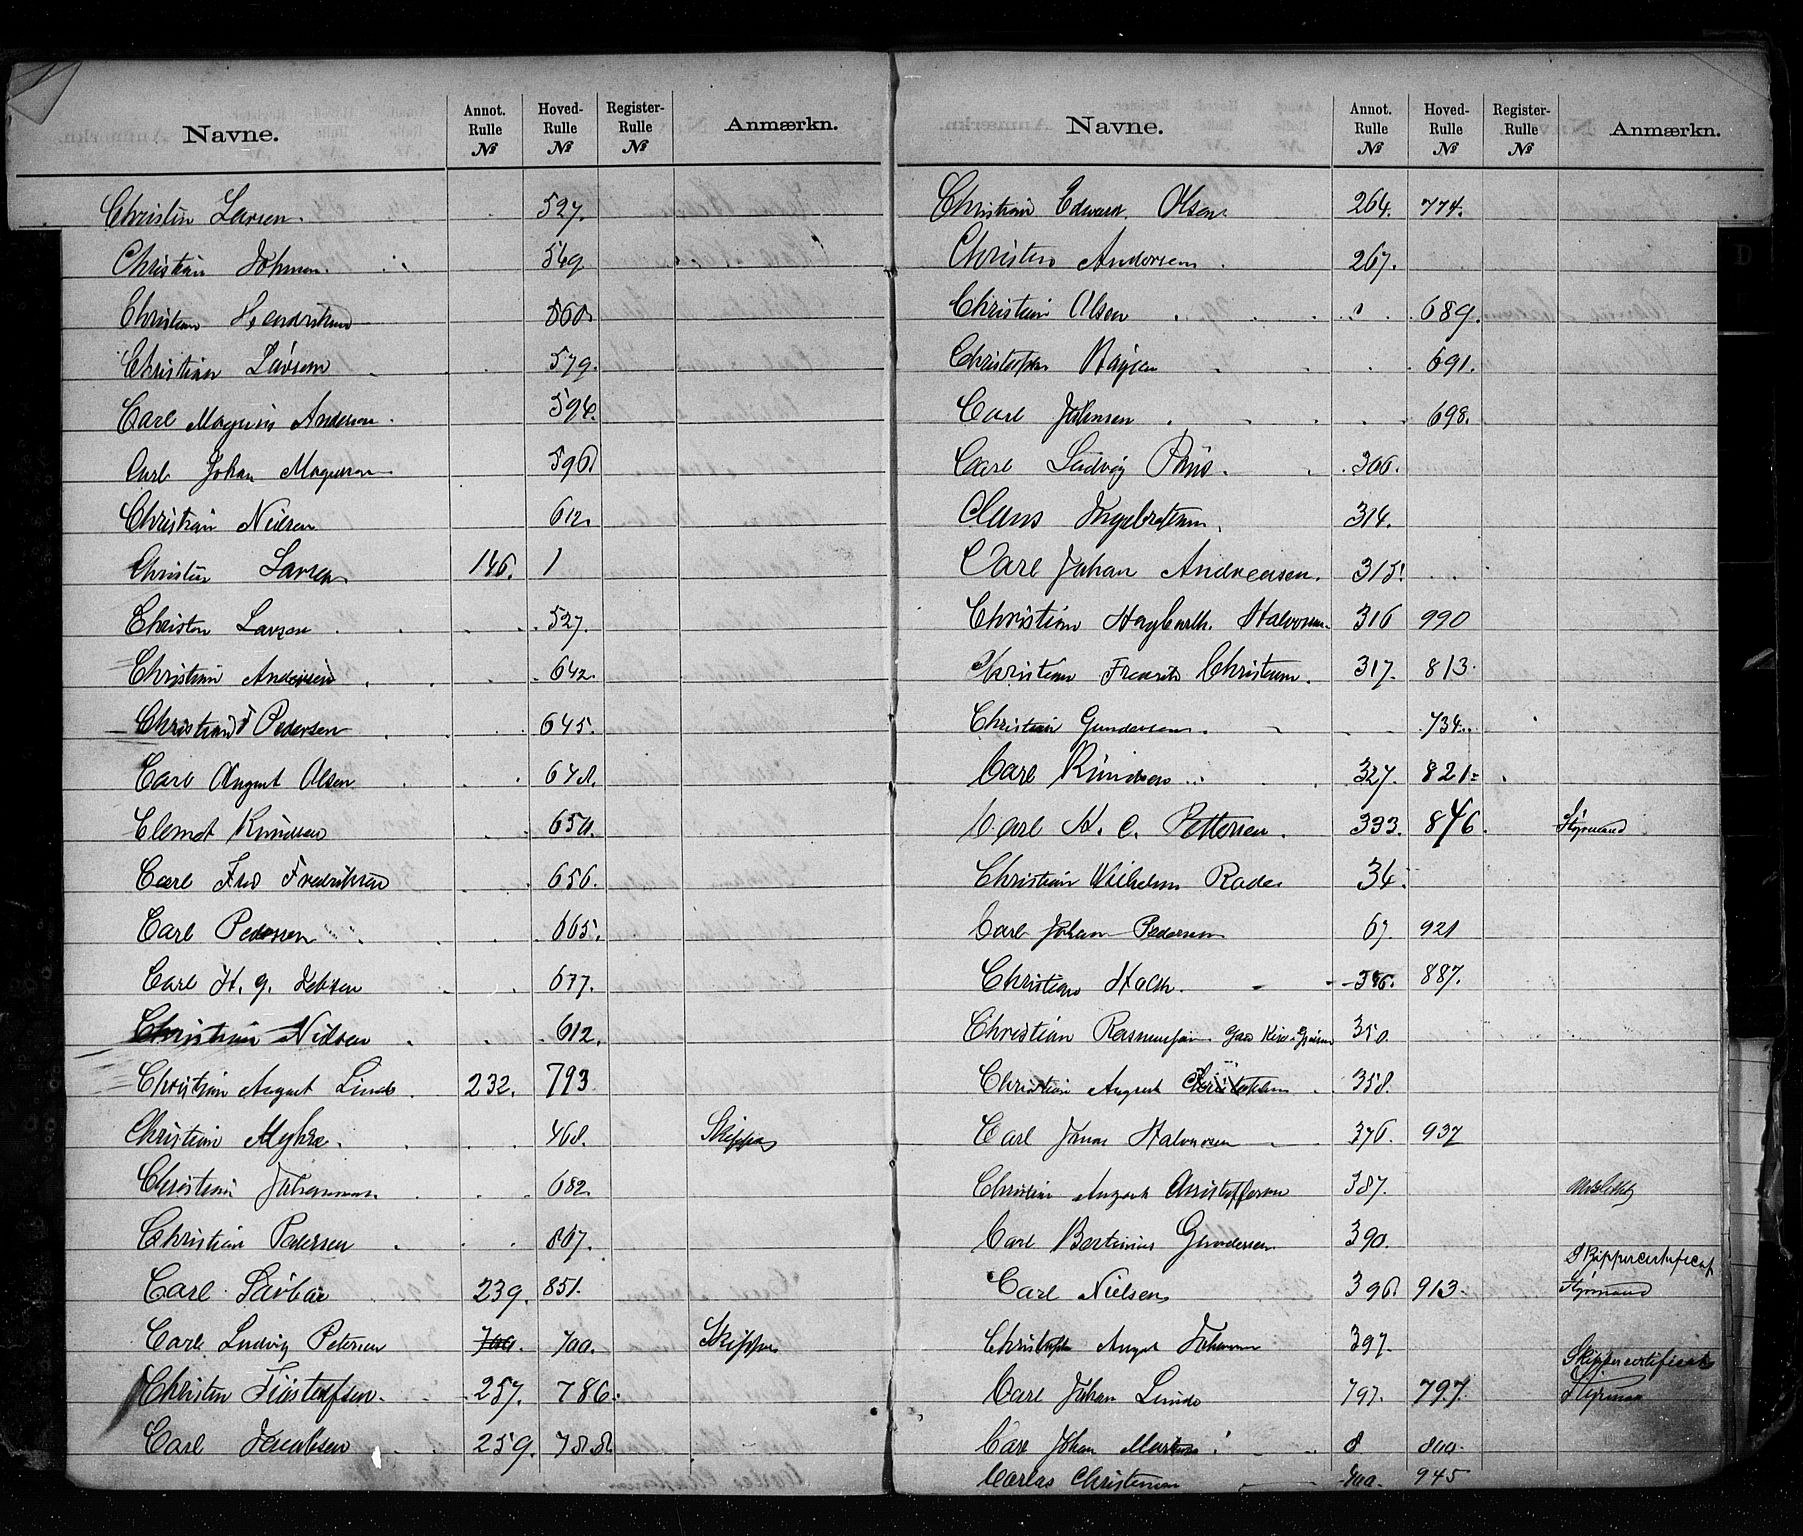 Navne. Annot. Rulle № Hoved- Rulle № Register- Rulle № Anmærkn.
Christin Larsen. 527.
Christian Johnsen. 549
Christian Hendriksen 560
Christian Larsen 579.
Carl Magnus Anderson. 594.
Carl Johan Magnusson 596
Christian Nielsen 612.
Christin Larsen 146. 1
Christen Larsen 527.
Christian Andersen 642.
Christian Pedersen 645.
Carl August Olsen 648.
Clemet Knudsen 650.
Carl Fred Fredriksen 656.
Carl Pedersen 665.
Carl H. G. Jebsen 677.
Christian Nielsen 612.
Christian August Linds. 232. 793
Christian Myhre. 468. Skipper
Christian Johannsen 682
Christian Pedersen 807.
Carl 239. 851.
Carl Ludvig Petersen 700. 700. Skipper
Christen Gustafsen. 257. 786.
Carl Jacobsen 259. 788
Navne. Annot. Rulle № Hoved- Rulle № Register- Rulle № Anmærkn.
Christian Edward Olsen. 264. 774.
Christen Andersen 267.
Christian Olsen 689.
Christopher 691.
Carl Johnsen 698.
Carl Ludvig 306.
Claus Ingebretsen 314.
Carl Johan Andreasen. 315.
Christian Hagbarth. Halvorsen. 316 990
Christian Fredrik Christensen. 317. 813.
Christian Gundersen. 734.
Carl Knudsen 327. 821
Carl H. C. Pettersen. 333. 846. Styrmand
Christian Wilhelm Rode 34.
Carl Johan Pedersen 67. 921
Christian Holm. 346. 887.
Christian Rasmussen. 350.
Christian August 358.
Carl Jonas Halvorsen 376. 937
Christian August Christoffersen 387.
Carl Bertinius Gundersen 390.
Skippercertificat
Carl Nielsen 396. 913. Styrmand
August Johannsen 397.
Skippercertificat
Carl Johan Lunde 797. 797. Styrman
Carl Johan 8 800.
Carlos Christensen 400. 945